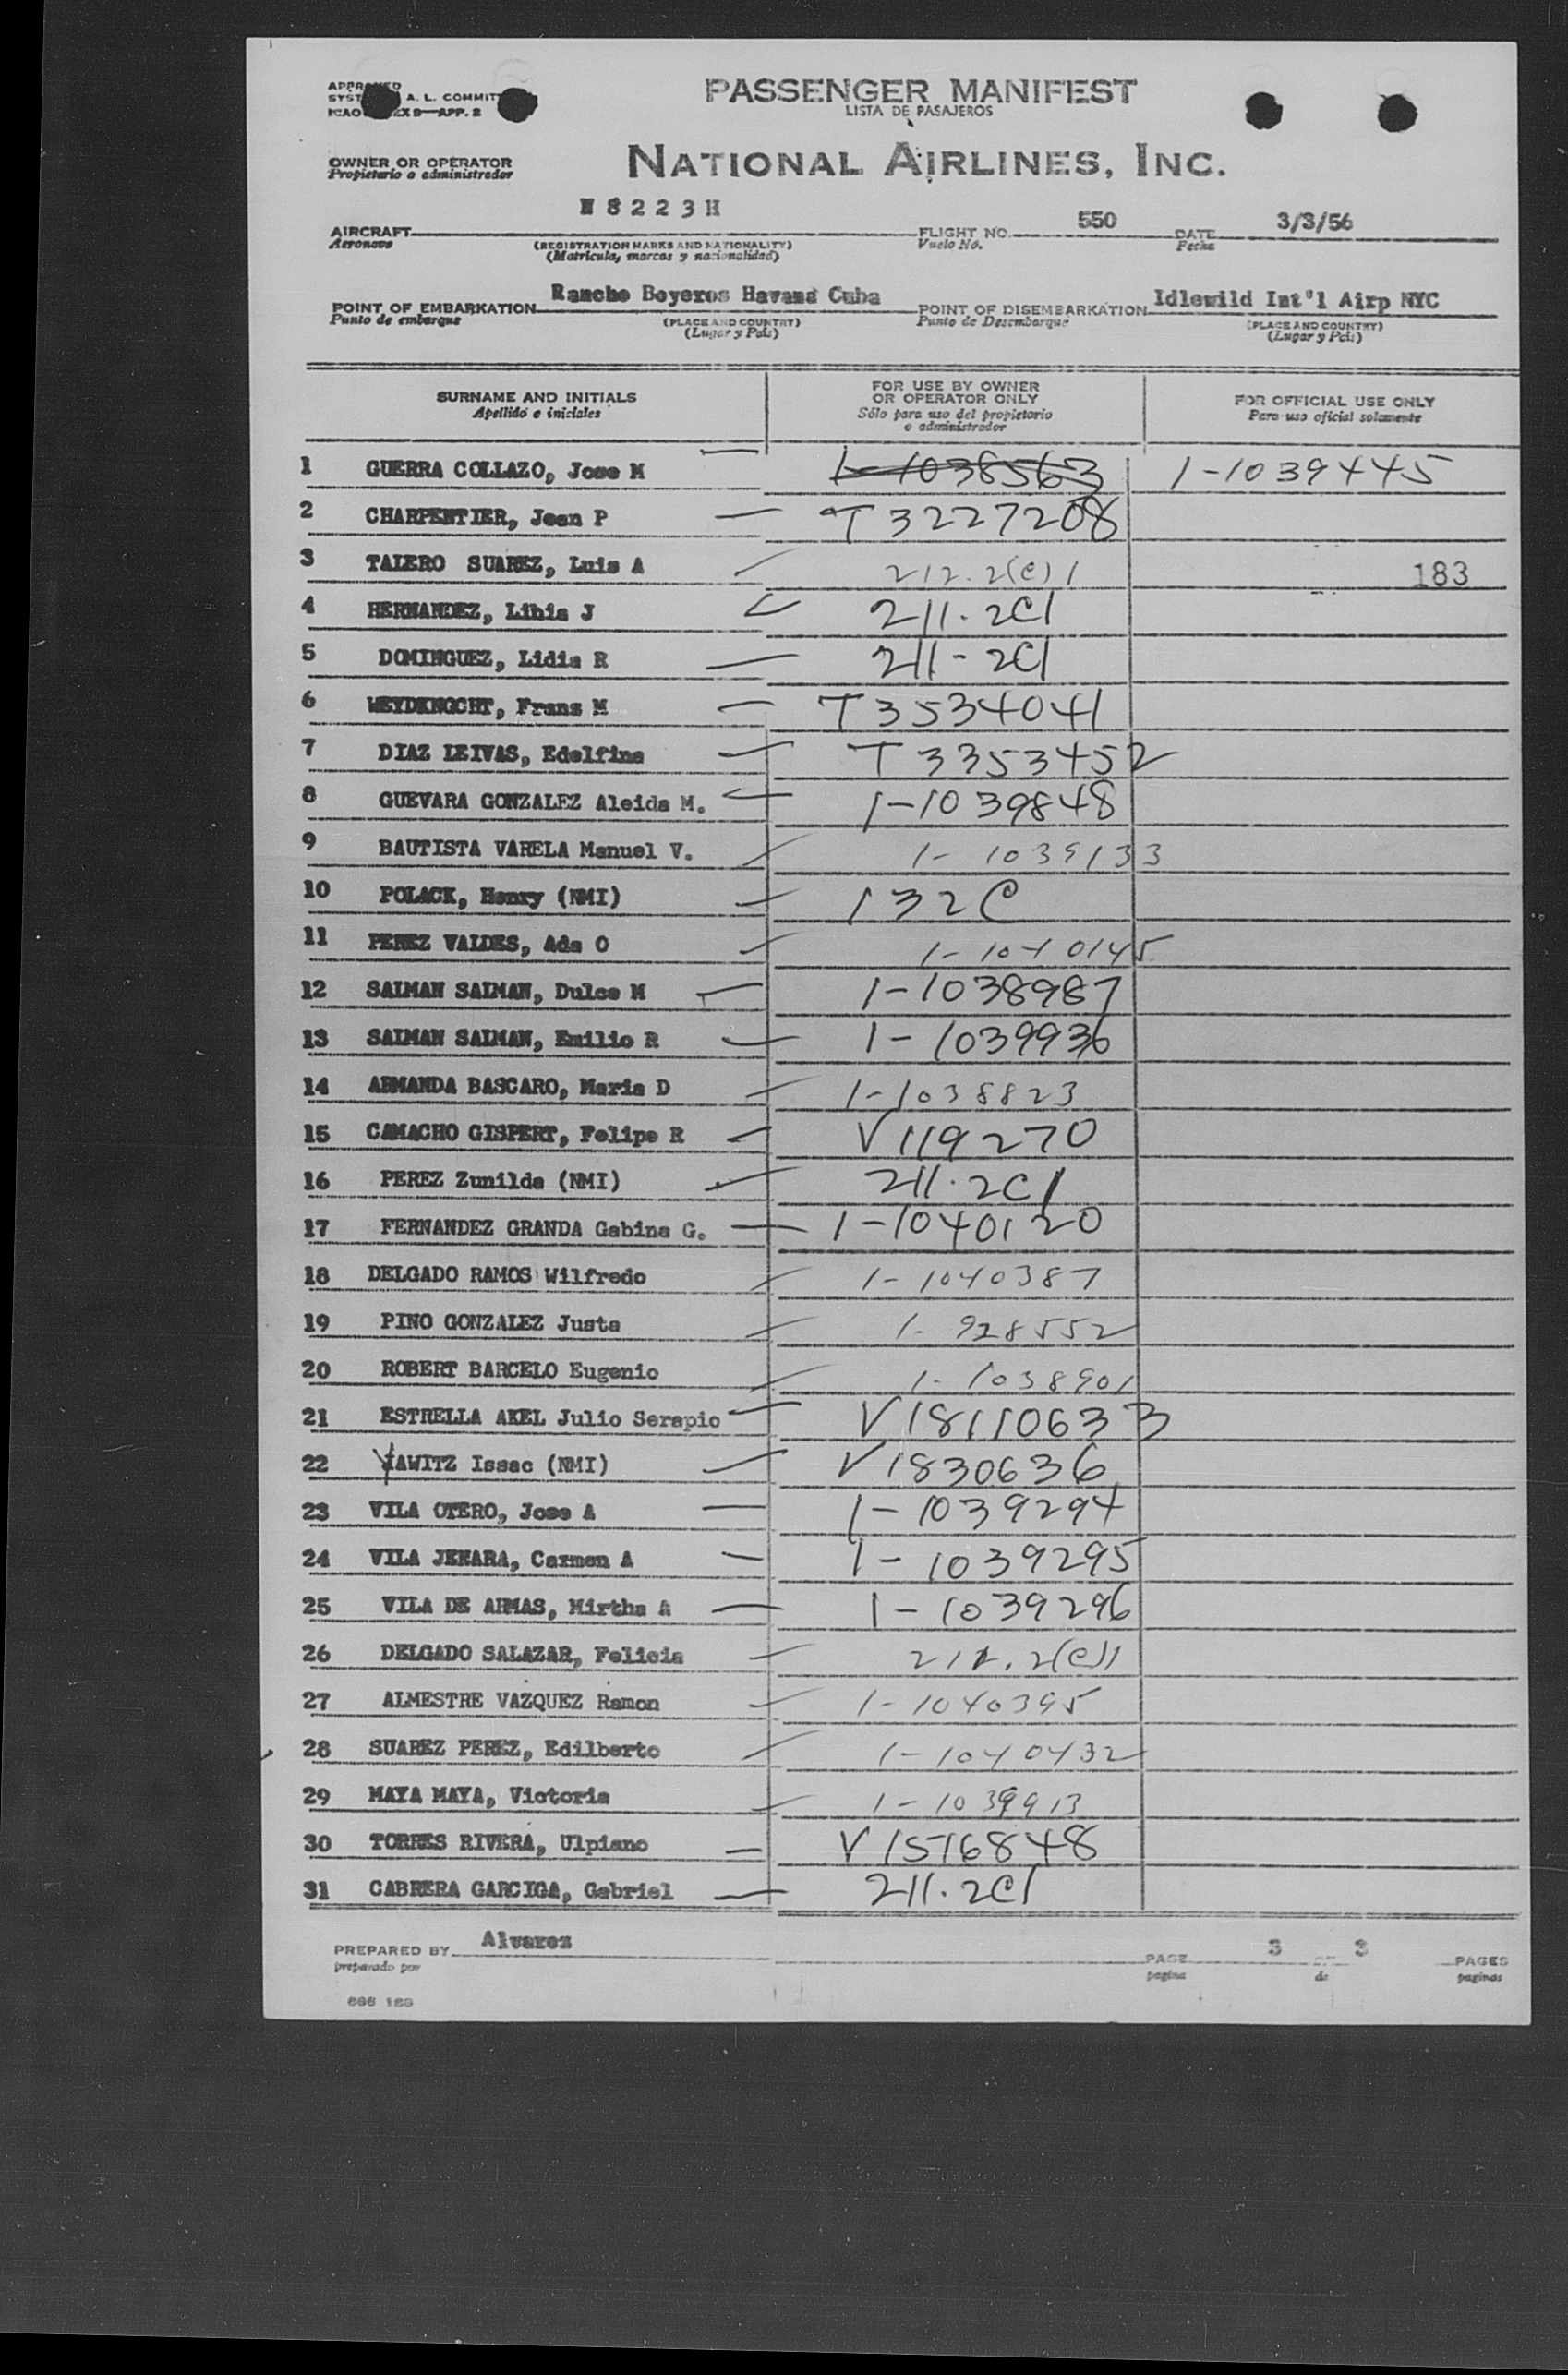 PASSENGER MANIFEST
LISTA DE PASAJEROS
A. L. COMMIT
APP. 2
OWNER OR OPERATOR
Propietario o administrador
NATIONAL AIRLINES, INC.
AIRCRAFT N8223H FLIGHT NO. 550 DATE 3/3/56
Aeronave (REGISTRATION MARKS AND NATIONALITY) Vuelo No. Fecha
(Matricula, marcas y nacionalidad)
POINT OF EMBARKATION Rancho Boyeros Havana Cuba POINT OF DISEMBARKATION Idlewild Int'l Airp NYC
Punto de embarque (PLACE AND COUNTRY) Punto de Desembarque (PLACE AND COUNTRY)
(Lugar y Pais) (Lugar y Pais)
SURNAME AND INITIALS FOR USE BY OWNER OR OPERATOR ONLY FOR OFFICIAL USE ONLY
Apellido e iniciales Sólo para uso del propietario o administrador Para uso oficial solamente
1 GUERRA COLLAZO, Jose M 1-1038563 1-1039445
2 CHARPENTIER, Jean P T3227208
3 TALERO SUAREZ, Luis A 212.2(e)1 183
4 HERNANDEZ, Libia J 211.2C1
5 DOMINGUEZ, Lidia R 211-2C1
6 Frans M T3534041
7 DIAZ LEIVAS, Edelfina T3353452
8 GUEVARA GONZALEZ Aleida M. 1-1039848
9 BAUTISTA VARELA Manuel V. 1-1039133
10 POLACK, Henry (NMI) 132C
11 PEREZ VALDES, Ada O 1-1040145
12 SAIMAN SAIMAN, Dulce M 1-1038987
13 SAIMAN SAIMAN, Emilio R 1-1039936
14 ARMANDA BASCARO, Maria D 1-1038823
15 CAMACHO GISPERT, Felipe R V119270
16 PEREZ Zunilda (NMI) 211.2C1
17 FERNANDEZ GRANDA Gabina G. 1-1040120
18 DELGADO RAMOS Wilfredo 1-1040387
19 PINO GONZALEZ Justa 1-928552
20 ROBERT BARCELO Eugenio 1-1038901
21 ESTRELLA AKEL Julio Serapio V18110633
22 YAWITZ Issac (NMI) V1830636
23 VILA OTERO, Jose A 1-1039294
24 VILA JENARA, Carmen A 1-1039295
25 VILA DE ARMAS, Mirtha A 1-1039296
26 DELGADO SALAZAR, Felicia 211.2(e)1
27 ALMESTRE VAZQUEZ Ramon 1-1040395
28 SUAREZ PEREZ, Edilberto 1-1040432
29 MAYA MAYA, Victoria 1-1039913
30 TORRES RIVERA, Ulpiano V1516848
31 CABRERA GARCIGA, Gabriel 211.2C1
PREPARED BY Alvarez PAGE 3 OF 3 PAGES
preparado por pagina de paginas